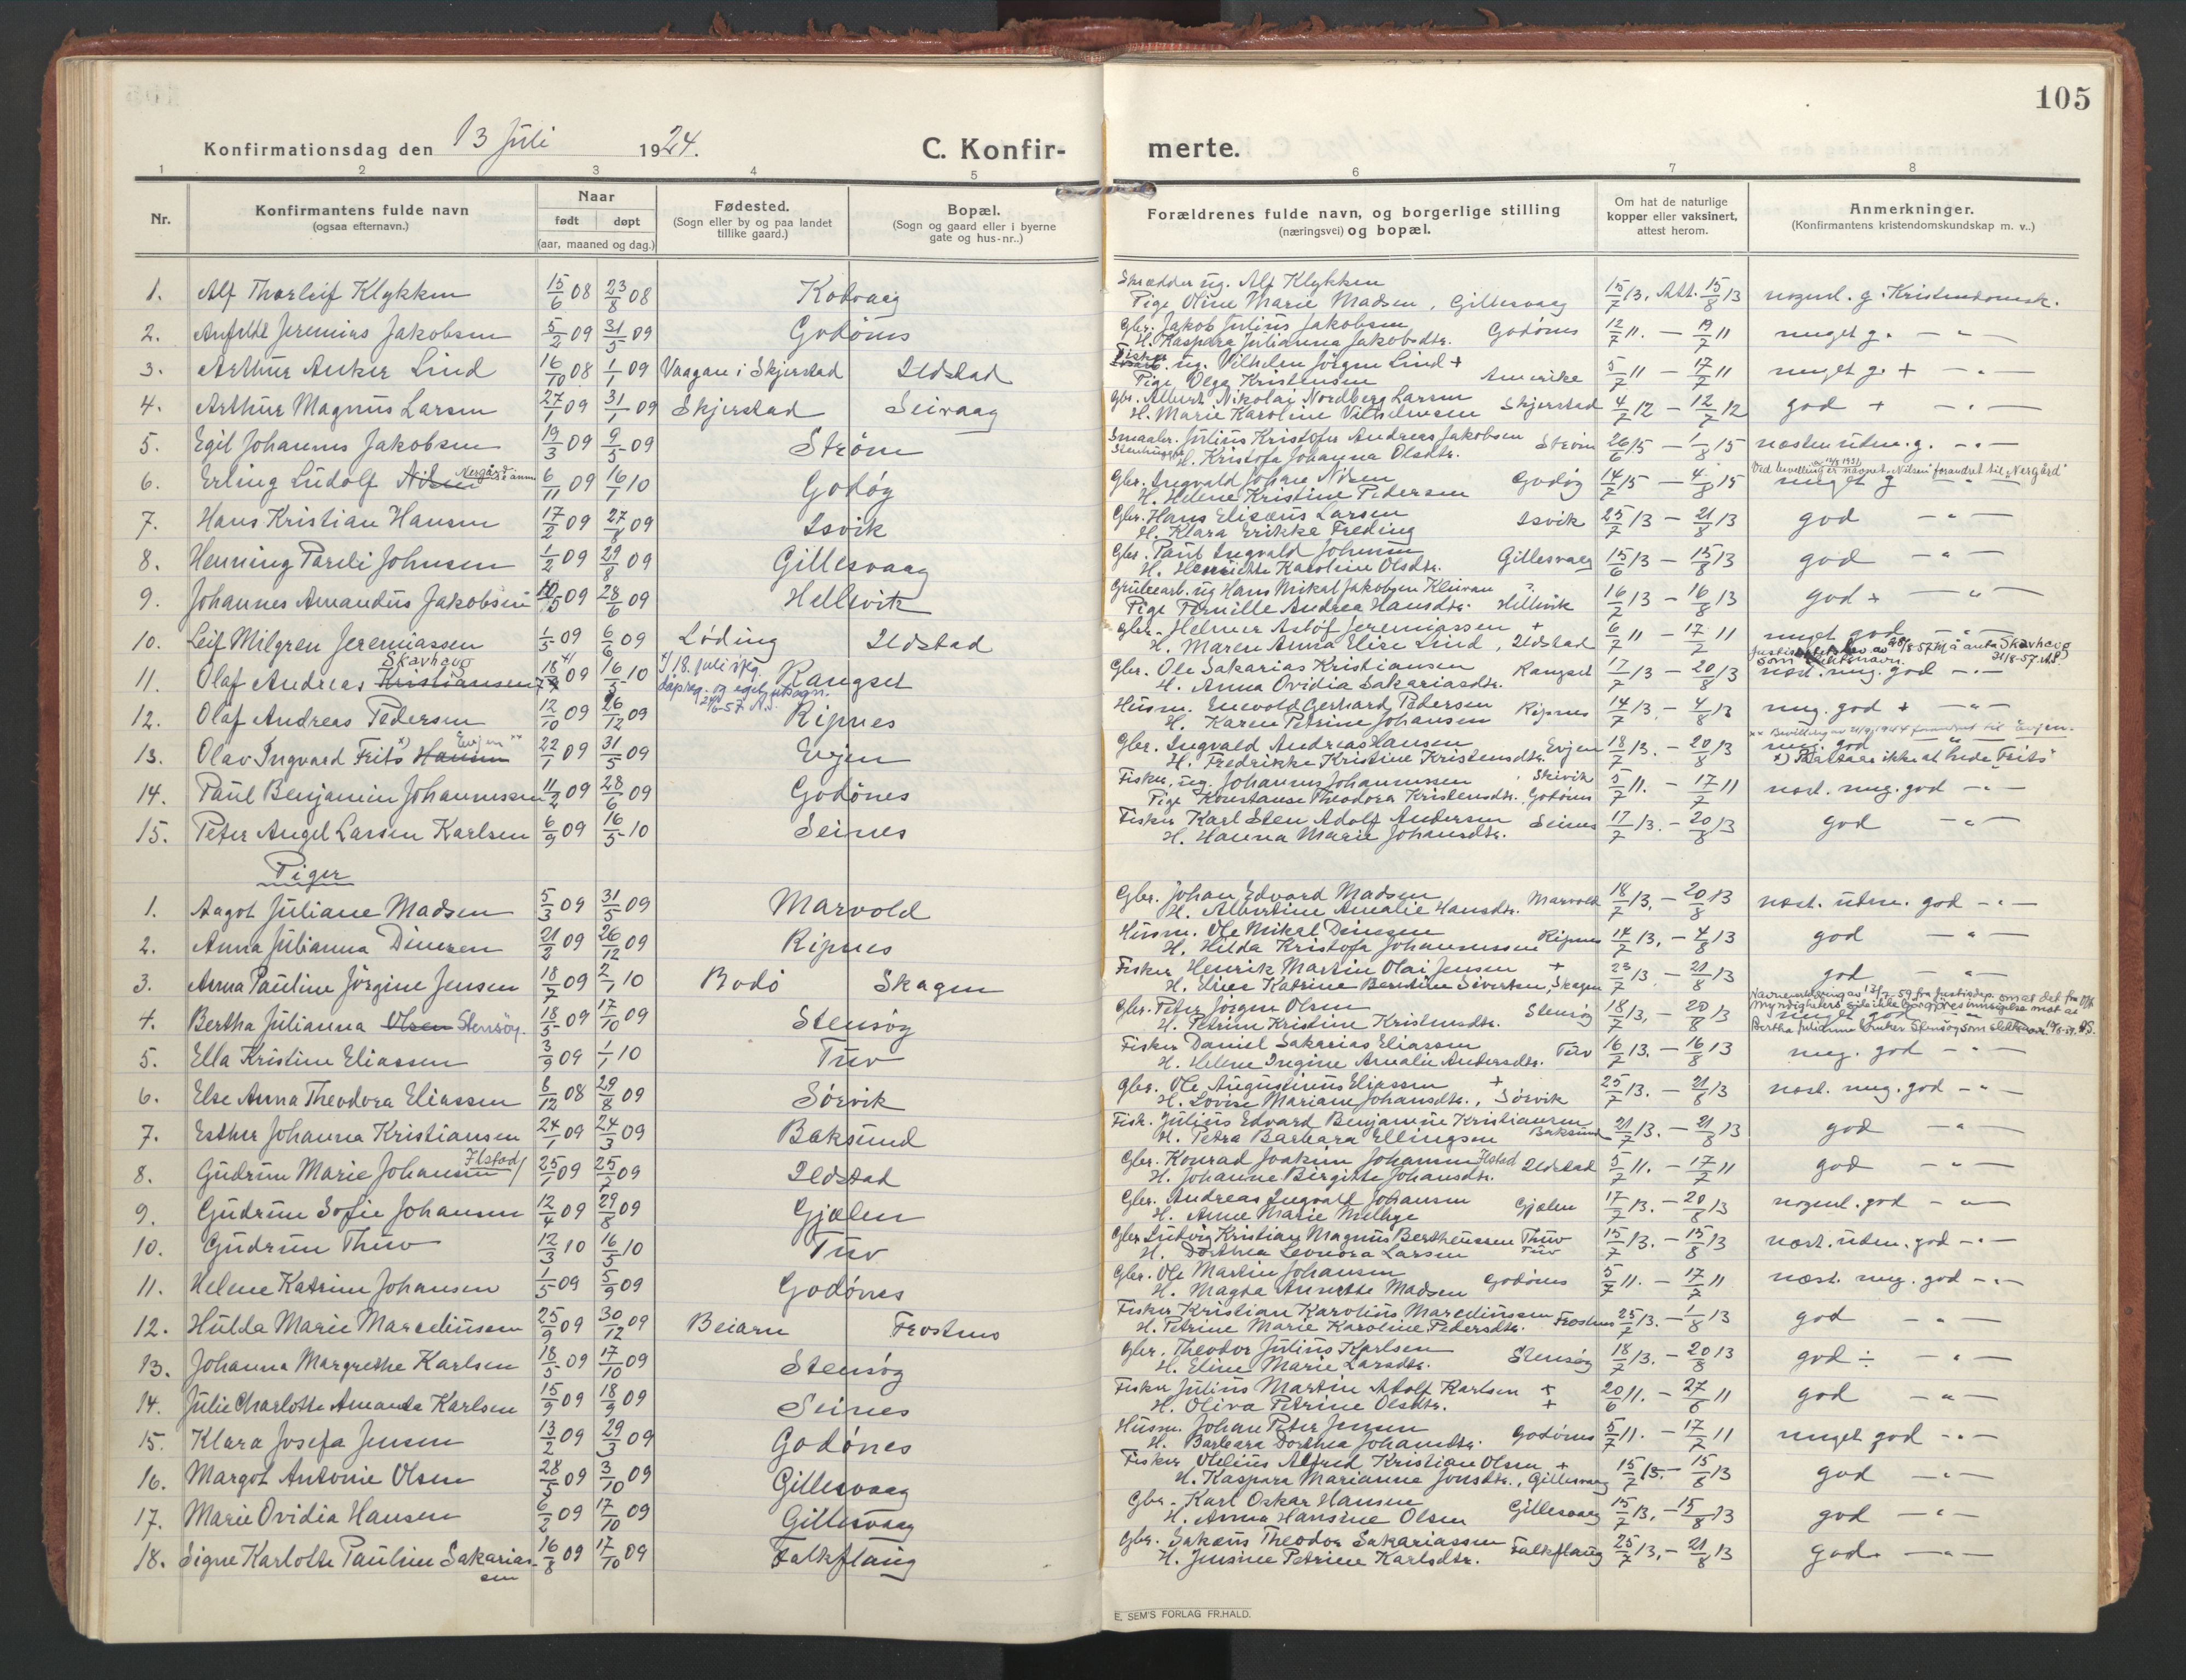 105
Konfirmationsdag den 13 Juli 1924. C. Konfir- merte.
1 2 3 4 5 6 7 8
Nr. Konfirmantens fulde navn (ogsaa efternavn.) Naar født døpt (aar, maaned og dag.) Fødested. (Sogn eller by og paa landet tillike gaard.) Bopæl. (Sogn og gaard eller i byerne gate og hus-nr..) Forældrenes fulde navn, og borgerlige stilling (næringsvei) og bopæl. Om hat de naturlige kopper eller vaksinert, attest herom. Anmerkninger. (Konfirmantens kristendomskundskap m. v..)
1. Alf Thorleif Klykken 15/6 08 23/8 08 Kodvaag Skrædder ug. Alf Klykken
Pige Oline Marie Madsen, Gillesvaag 15/7 13. Att. 15/8 13 nogenl. g. Kristendomsk.
2. Anfeldt Jeremias Jakobsen 5/2 09 31/5 09 Godønes Gbr. Jakob Julius Jakobsen
H. Kaspara Julianna Jakobsdtr. Godønes 12/7 11. — 19/7 11 meget g. — " —
3. Arthur Anker Lind 16/10 08 1/1 09 Vaagan i Skjerstad Ildstad Fisker ug. Vilhelm Jørgen Lind +
Pige Olga Kristensen Amerika 5/7 11 — 17/7 11 meget g. + — " —
4. Arthur Magnus Larsen 27/1 09 31/1 09 Skjerstad Seivaag Gbr. Albert Nikolai Nordberg Larsen
H. Marie Karoline Vilhelmsen Skjerstad 4/7 12 — 12/7 12 god + — " —
5. Egil Johannes Jakobsen 19/3 09 9/5 09 Strøm Smaabr. Julius Kristofer Andreas Jakobsen
Stenhugger H. Kristofa Johanna Olsdtr. Strøm 26/6 15 — 1/8 15 næsten udm. g. — " —
6. Erling Ludolf Nilsen Nergård se anm 6/11 09 16/1 10 Godøy Gbr. Ingvald Johan Nilsen
H. Helene Kristine Pedersen Godøy 14/7 15 — 4/8 15 meget g — " —
Ved bevelling er navnet "Nilsen" forandret til "Nergård"
7. Hans Kristian Hansen 17/2 09 27/8 09 Isvik Gbr. Hans Elisæus Larsen
H. Klara Erikke Freding Isvik 25/7 13 — 21/8 13 god — " —
8. Henning Pareli Johnsen 1/2 09 29/8 09 Gillesvaag Gbr. Paul Ingvald Johnsen
H. Henriette Karoline Olsdtr. Gillesvaag 15/6 13 — 15/8 13 god — " —
9. Johannes Amandus Jakobsen 10/5 09 28/6 09 Hellevik Grubearb. ug Hans Mikal Jakobsen Kleivan ?
Pige Pernille Andrea Hansdtr. Hellvik 16/7 13 — 16/8 13 god + — " —
10. Leif Milgren Jeremiassen 1/5 09 6/6 09 Løding Ildstad Gbr. Helmer Astøf Jeremiassen +
H. Maren Anna Elise Lind, Ildstad 6/7 11 — 17/7 11 meget god — " —
11. Olaf Andreas Kristiansen Skavhaug 18/7 09 16/5 10 Rangset Gbr. Ole Sakarias Kristiansen
H. Anna Ovidia Sakariasdtr. Rangset 17/7 13 — 20/8 13 næst. mug. god — " —
x/ 18. juli ifg. dåpreg. og eget utsagn. 29/6-57 A.S.
å anta Skavhaug som slektsnavn. 21/8-57. AS
12. Olaf Andreas Pedersen 12/10 09 26/12 09 Ripnes Husm. Enevold Gerhard Pedersen
H. Karen Petrine Johansen Ripnes 14/7 13. — 4/8 13 mug. god + — " —
13. Olav Ingvard Frits x) Hansen Evjen xx 22/1 09 31/5 09 Evjen Gbr. Ingvald Andreas Hansen
H. Fredrikke Kristine Kristensdtr. Evjen 18/7 13. — 20/8 13 mug. god "
xx Bevilling av 21/9 1944 forandret til Evjen.
x) Skal ikke at hede "Frits"
14. Paul Benjamin Johannessen 11/2 09 28/6 09 Godönes Fisker, ug. Johannes Johannessen, Skivik
Pige Konstanse Theodora Kristensdtr. Godønes 5/7 11. — 17/7 11 næst. mug. god — " —
15. Peter Angel Larsen Karlsen 6/9 09 16/5 10 Seines Fisker Karl Sten Adolf Andersen
H. Hanna Marie Johansdtr. Seines 17/7 13. — 20/8 13 god — " —
Piger
1. Aagot Juliane Madsen 5/3 09 31/5 09 Marvold Gbr. Johan Edvard Madsen
H. Albertine Amalie Hansdtr. Marvold 18/7 13. — 20/8 13 næst. udm. god — " —
2. Anna Julianna Dinesen 21/2 09 26/12 09 Ripnes Husm. Ole Mikal Dinesen
H. Hilda Kristofa Johannessen Ripnes 14/7 13. — 4/8 13 god — " —
3. Anna Pauline Jörgine Jensen 18/7 09 2/1 10 Bodö Skagen Fisker Henrik Martin Olai Jensen +
H. Elnes Katrine Berntine Sivertsen, Skagen 23/7 13. — 21/8 13 god — " —
4. Bertha Julianna Olsen Stensøy. 18/5 09 17/10 09 Stensøy Gbr. Peter Jørgen Olsen
H. Petrine Kristine Kristensdtr. Stensøy 18/7 13, — 20/8 13 meget god "
Navnemelding av 13/2 59 fra Justisdep. om at det fra myndighetens side ikke gjøres innsigelse mot at Bertha Julianne bruker Stensøy som slektsnavn. AS.
5. Ella Kristine Eliassen 3/9 09 1/1 10 Tuv Fisker Daniel Sakarias Eliassen
H. Helene Ingine Amalie Andersdtr. Tuv 16/7 13. — 16/8 13 meg. god — " —
6. Else Anna Theodora Eliassen 8/12 08 29/8 09 Sörvik Gbr. Ole Augustinus Eliassen +
H. Lovise Mariane Johansdtr., Sörvik 25/7 13. — 21/8 13 næst. mug. god — " —
7. Esther Johanna Kristiansen 24/1 09 24/3 09 Baksund Fisk. Julius Edvard Benjamin Kristiansen
H. Petra Barbara Ellingsen Baksund 21/7 13. — 21/8 13 god — " —
8. Gudrun Marie Johansen Ilstad/ 25/1 09 25/7 09 Ildstad Gbr. Konrad Joakim Johansen Ilstad
H. Johanne Birgitte Johansdtr. Ildstad 5/7 11. — 17/7 11 god — " —
9. Gudrun Sofie Johansen 12/4 09 29/8 09 Gjælen Gbr. Andreas Ingvald Johansen
H. Anne Marie Mælhye Gjælen 17/7 13. — 20/8 13 nogenl. god — " —
10. Gudrun Thuv 12/3 10 16/5 10 Tuv Gbr Ludvig Kristian Magnus Bertheussen Thuv
H. Dorthea Leonora Larsen Tuv 15/7 13. — 15/8 13 næst. udm. god — " —
11. Helene Katrine Johansen 1/5 09 5/9 09 Godönes Gbr. Ole Martin Johansen
H. Magda Annette Madsen Godönes 5/7 11. — 17/7 11 næst. mug. god — " —
12. Hulda Marie Marceliussen 25/9 09 30/12 09 Beiarn Frostnes Fisker Kristian Karolius Marceliussen
H. Petrine Marie Karoline Pedersdtr. Frostnes 25/7 13. — 1/8 13 god — " —
13. Johanna Margrethe Karlsen 18/5 09 17/10 09 Stensøy Gbr. Theodor Julius Karlsen
H. Eline Marie Larsdtr. Stensøy 18/7 13. — 20/8 13 god ÷ — " —
14. Julie Charlotte Amanda Karlsen 15/9 09 18/9 09 Seines Fisker Julius Martin Adolf Karlsen +
H. Oliva Petrine Olsdtr. + 20/6 11. — 27/6 11 god — " —
15. Klara Josefa Jensen 13/2 09 29/3 09 Godönes Husm. Johan Peter Jensen
H. Barbara Dorthea Johansdtr. Godönes 5/7 11. — 17/7 11 meget god — " —
16. Margot Antonie Olsen 28/5 09 3/10 09 Gillesvaag Fisker Olelius Alfred Kristian Olsen +
H. Kaspara Marianne Jonsdtr., Gillesvaag 15/7 13. — 15/8 13 god — " —
17. Marie Ovidia Hansen 6/2 09 17/10 09 Gillesvaag Gbr. Karl Oskar Hansen
H. Anna Hansine Olsen Gillesvaag 15/7 13. — 15/8 13 god — " —
18. Signe Karlotte Pauline Sakariassen 16/8 09 17/10 09 Falkflaug Gbr. Sakæus Theodor Sakariassen
H. Jensine Petrine Karlsdtr. Falkflaug 25/7 13. — 21/8 13 god. — " —
E. SEM'S FORLAG FR.HALD.